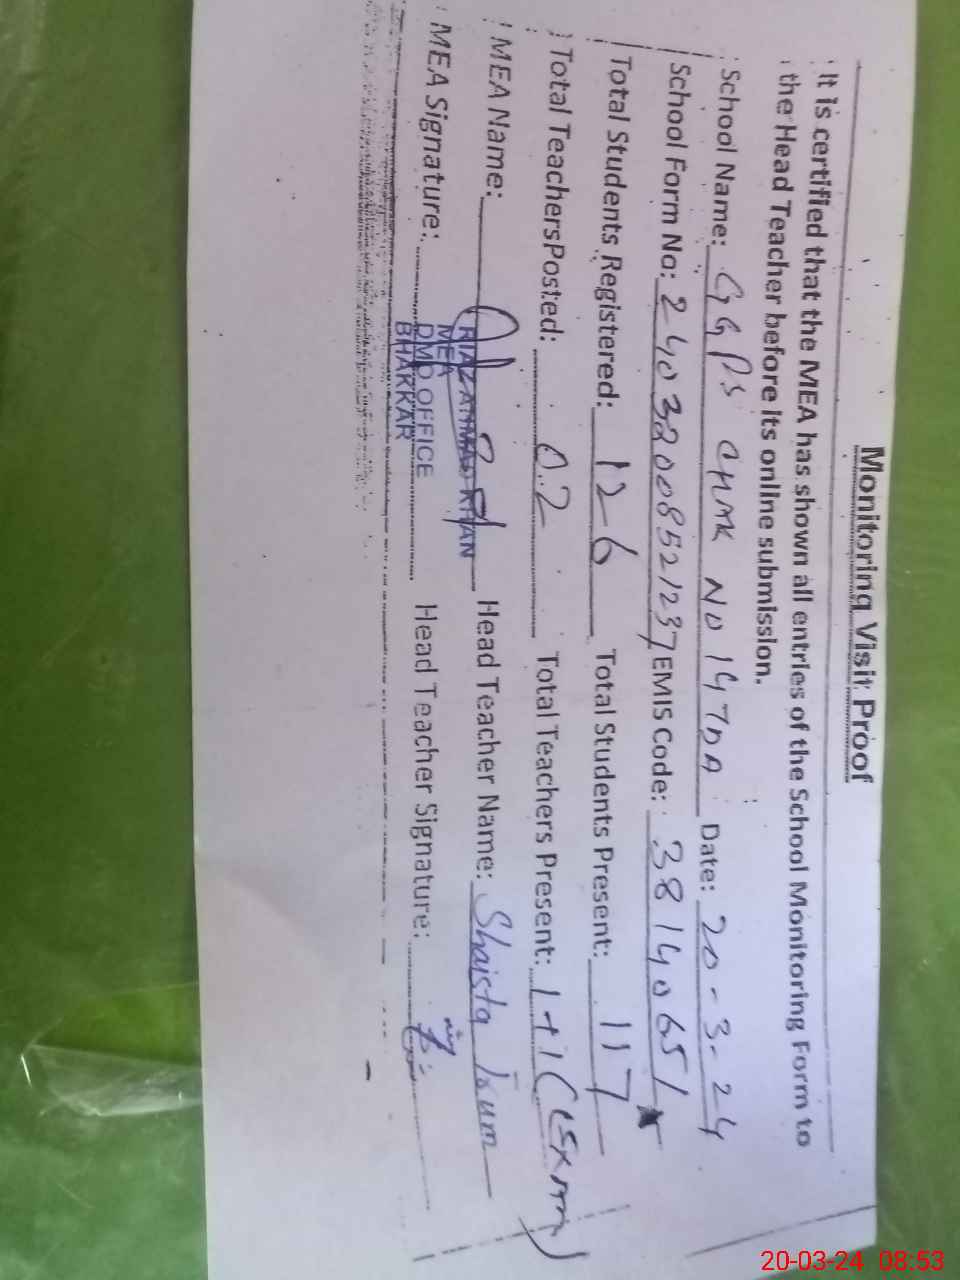 Monitoring Visit Proof
It is certified that the MEA has shown all entries of the School Monitoring Form to
the Head Teacher before its online submission.
School Name: GGPS CHAK NO 147DA Date: 20-3-24
School Form No: 24032008521237 EMIS Code: 38140651
Total Students Registered: 126 Total Students Present: 117
Total TeachersPosted: 02 Total Teachers Present: 1+1(
MEA Name: Head Teacher Name: Shaista
RIAZ AHMAD KHAN
MEA
MEA Signature: Head Teacher Signature:
DMO OFFICE
BHAKKAR
20-03-24 08:53